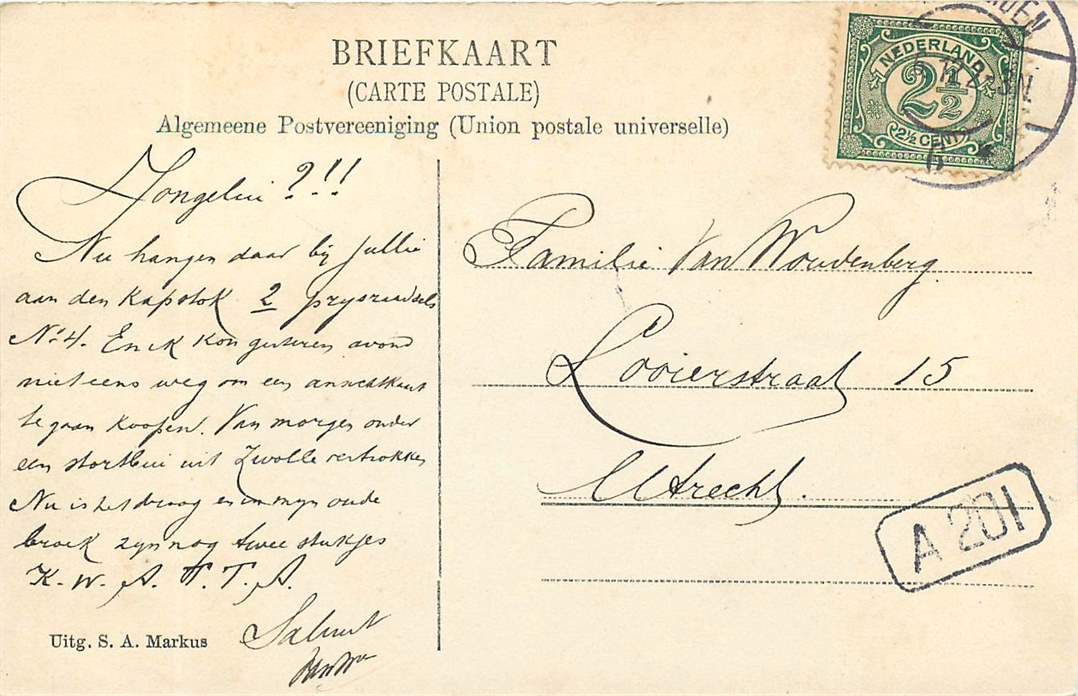 BRIEFKAART
(CARTE POSTALE)
Algemeene Postvereeniging (Union postale universelle)
NEDERLAND
2½
2½ CENT
Jongelui?!!
Nu hangen daar bij Jullie
aan den Kapstok 2 prysraadsels
No. 4. En ik kon gisteren avond
niet eens weg om een ansichtkaart
te gaan koopen. Van morgen onder
een stortbui uit Zwolle vertrokken
Nu is het droog en in myn oude
broek zyn nog twee stukjes
K. W. A. T. T. A.
Saluut
Familie Van Woudenberg.
Looierstraat 15
Utrecht.
A 201
Uitg. S. A. Markus